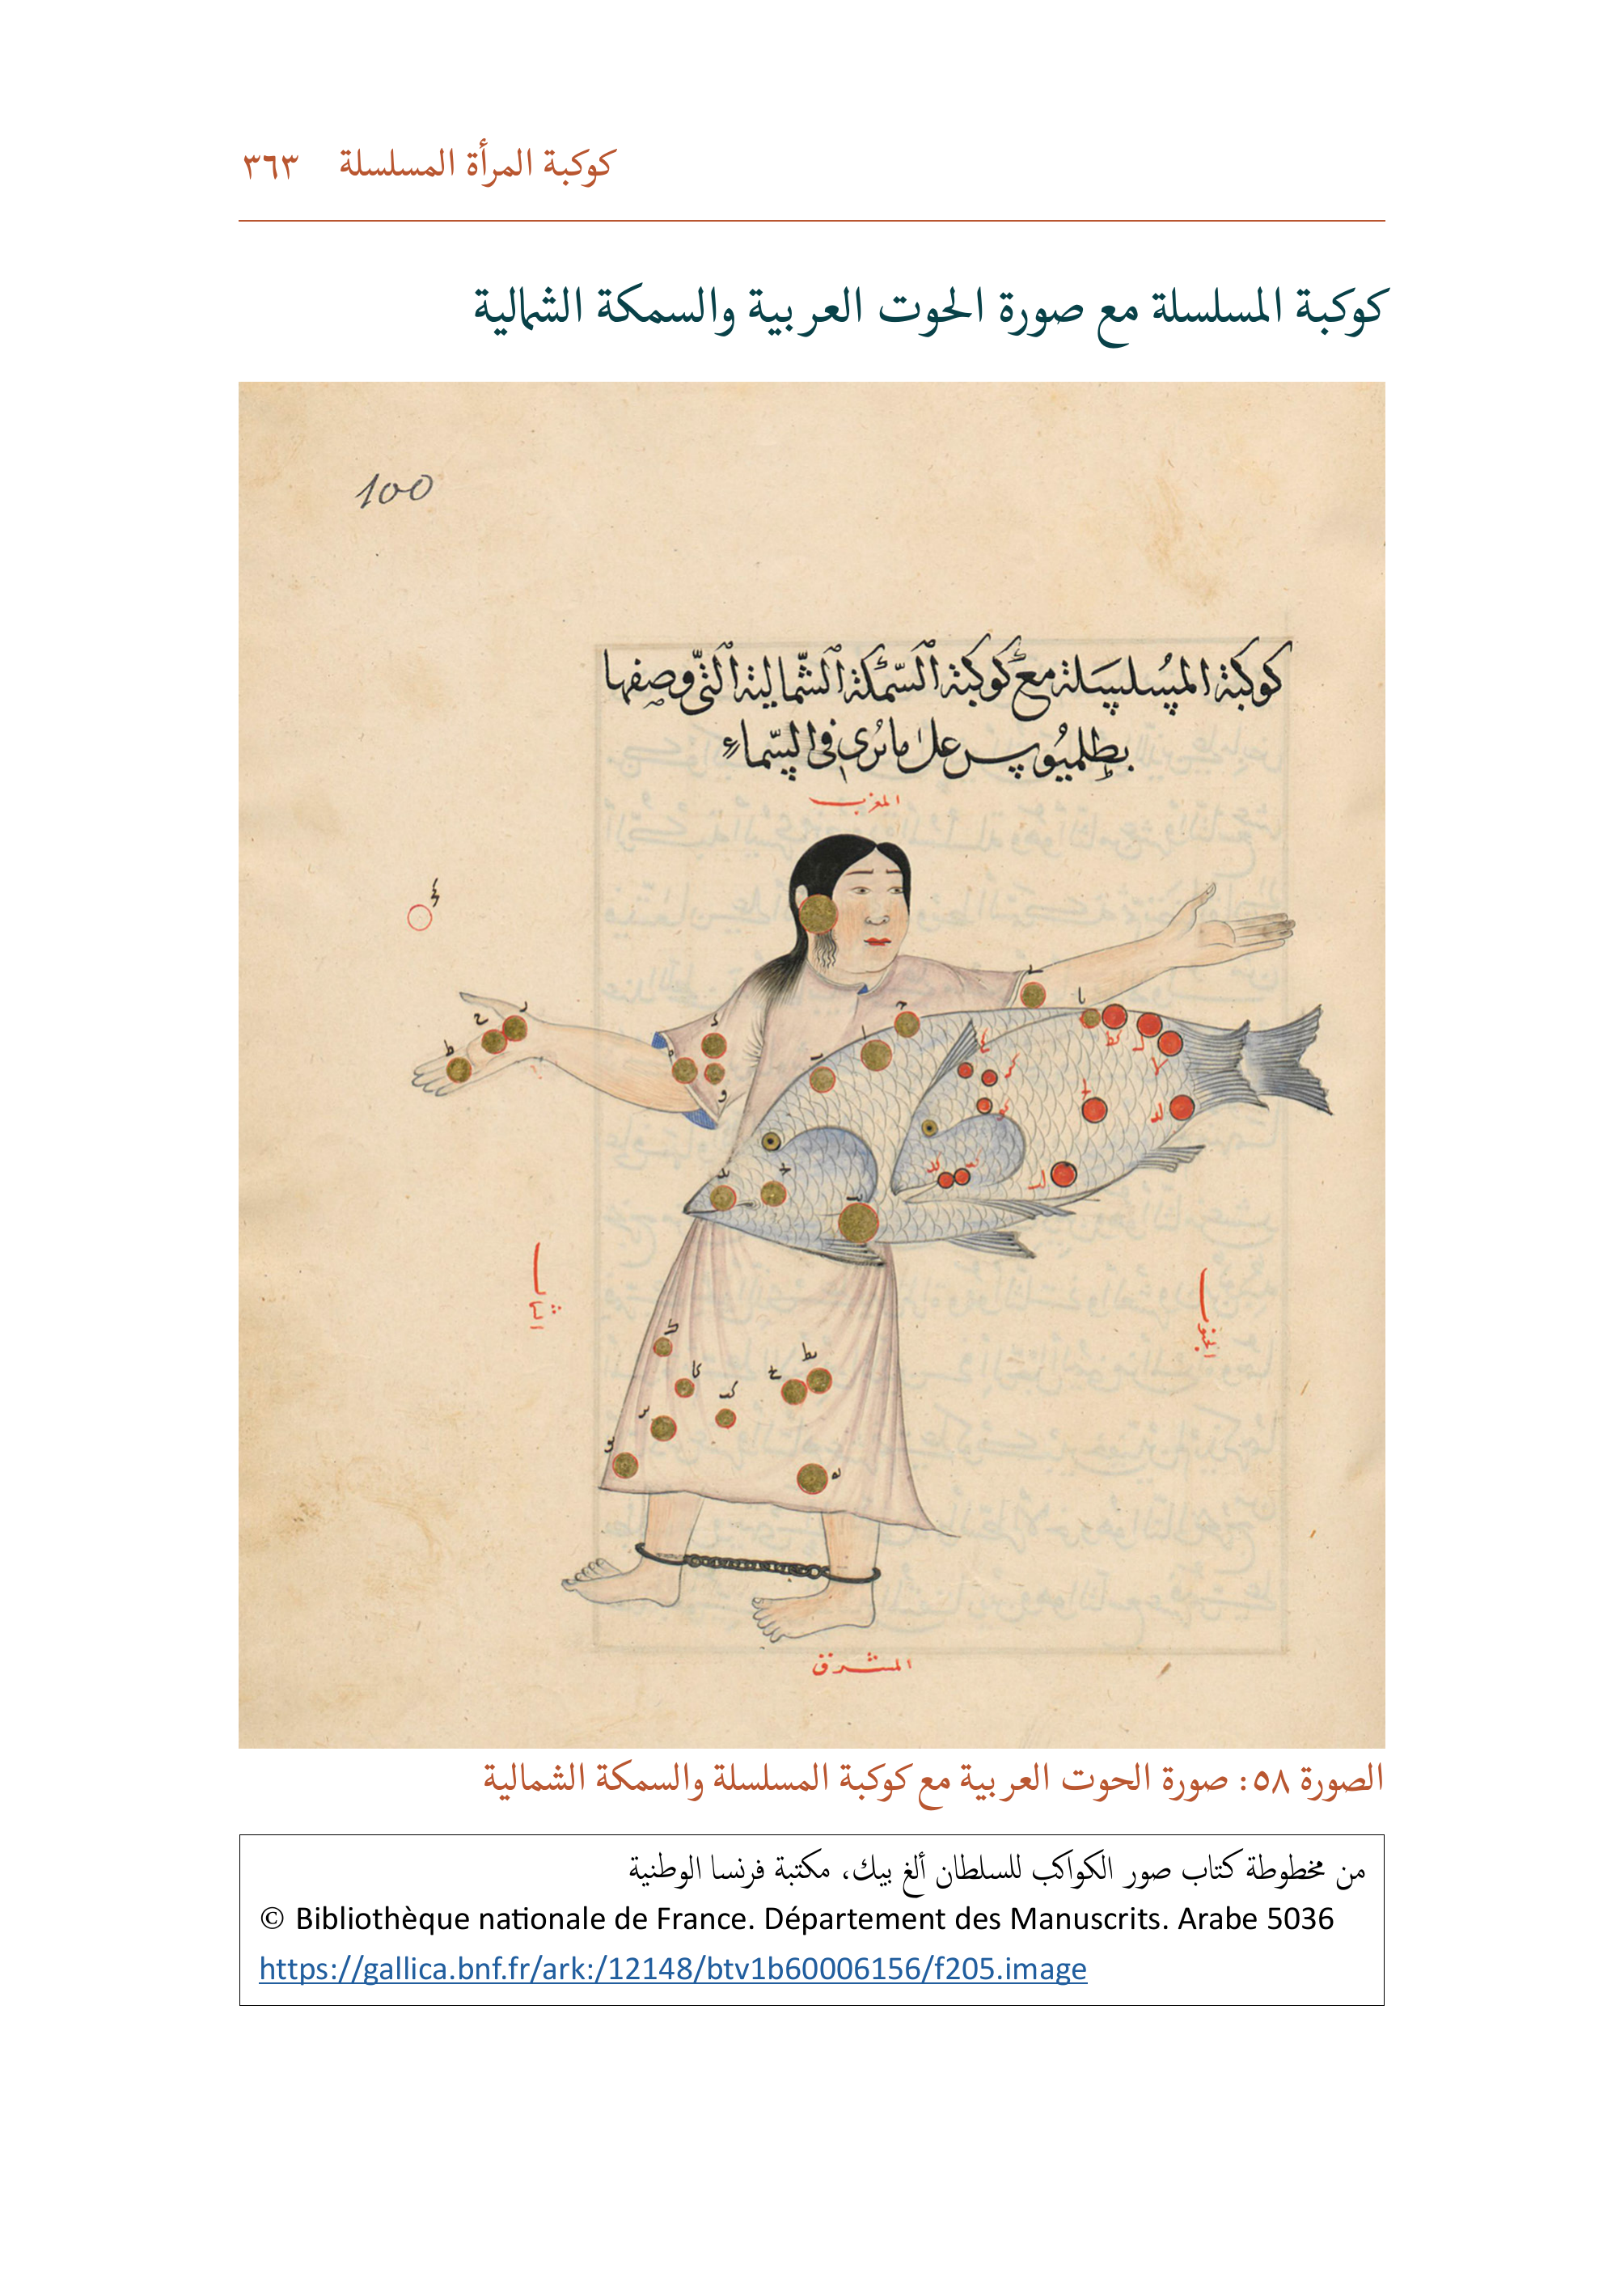 كوكبة المرأة المسلسلة ٣٦٣
كوكبة المسلسلة مع صورة الحوت العربية والسمكة الشمالية
100
كوكبة المسلسلة مع كوكبة السمكة الشمالية التي وصفها
بطلميوس على ما ترى في السماء
المغرب
الشمال
الجنوب
المشرق
الصورة ٥٨: صورة الحوت العربية مع كوكبة المسلسلة والسمكة الشمالية
من مخطوطة كتاب صور الكواكب للسلطان ألغ بيك، مكتبة فرنسا الوطنية
© Bibliothèque nationale de France. Département des Manuscrits. Arabe 5036
https://gallica.bnf.fr/ark:/12148/btv1b60006156/f205.image